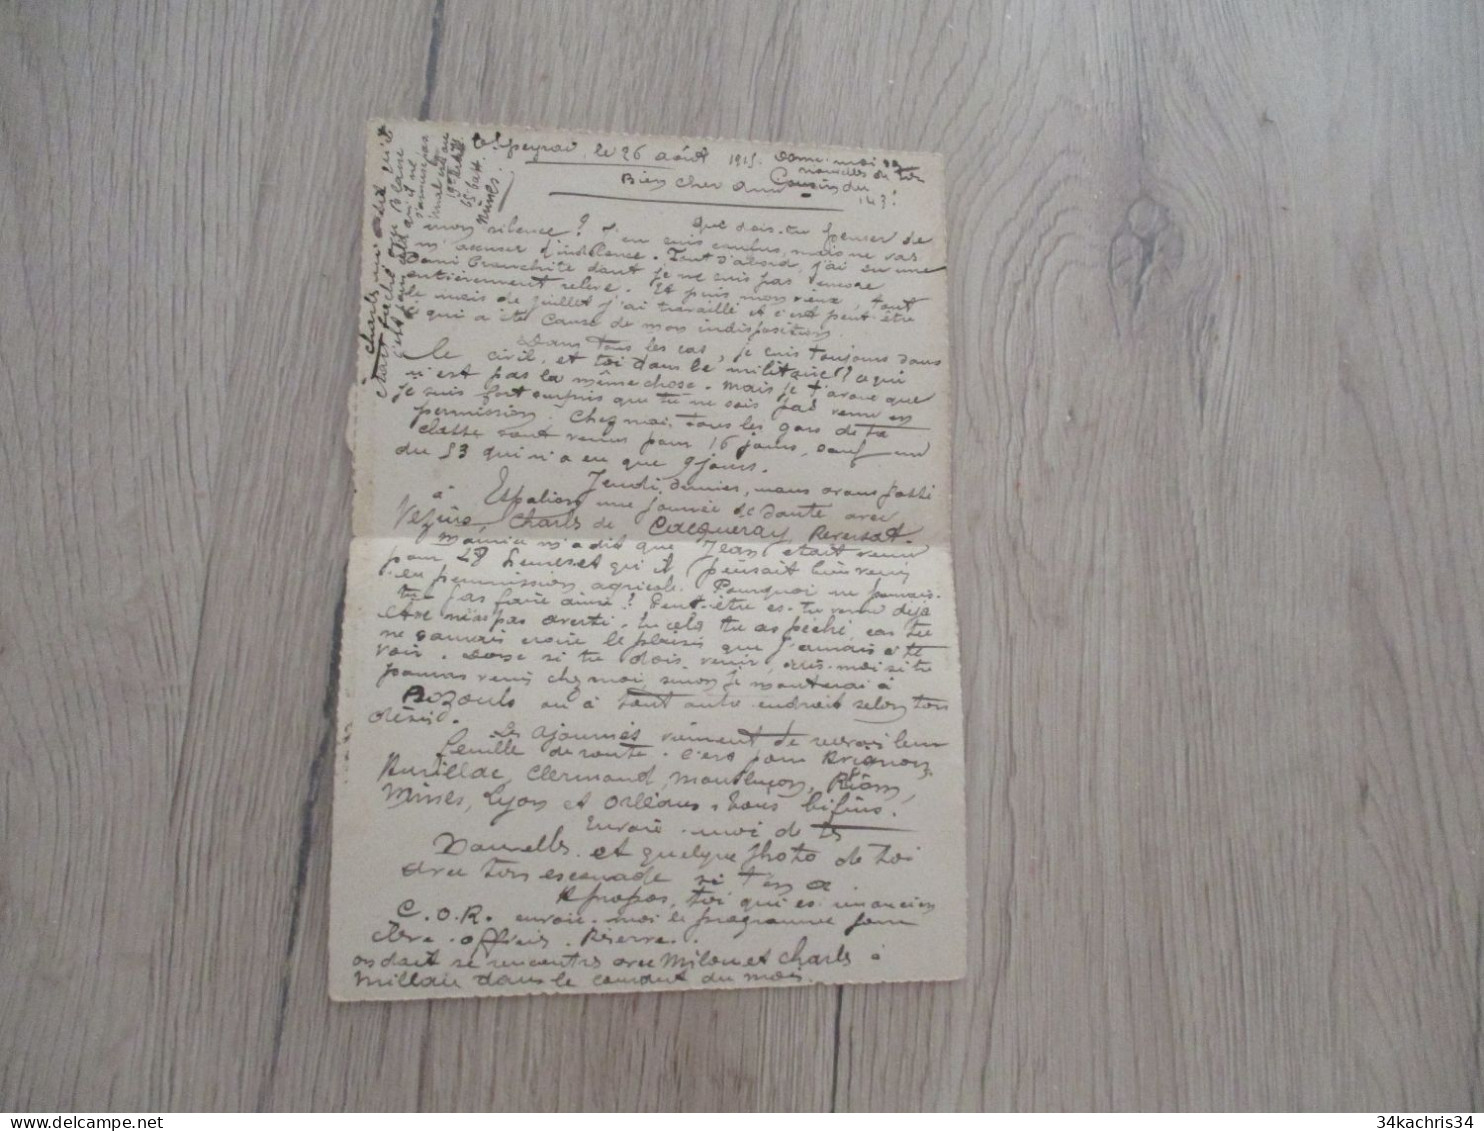 Espeyrac, le 26 août 1915. Donne-moi
nouvelles de ton
Cousin du
143!
Bien cher ami
Que dois-tu penser de
mon silence? J'en suis confus, mais ne vas
m'accuser d'indolence. Tout d'abord, j'ai eu une
bronchite dont je ne suis pas encore
entièrement relevé. Et puis mon vieux, tout
le mois de juillet j'ai travaillé et c'est peut-être
ce qui a été cause de mon indisposition
Dans tous les cas, je suis toujours dans
le civil, et toi dans le militaire? ce qui
n'est pas la même chose. Mais je t'avoue que
je suis fort surpris que tu ne sois pas venu en
permission. Chez moi, tous les gars de ta
classe sont venus pour 16 jours, sauf un
du 53 qui n'a eu que 9 jours.
Jeudi dernier, nous avons passé
à Espalion une journée avec
Charles de Cacqueray,
Maurice m'a dit que Jean était venu
pour 28 heures et qu'il pensait bien venir
en permission agricole. Pourquoi ne pourrais-
tu pas faire ainsi? Peut-être es-tu venu déjà
et ne m'as pas averti. En cela tu as péché, car tu
ne saurais croire le plaisir que j'aurais à te
voir. Donc si tu dois venir, avis-moi si tu
pourras venir chez moi, sinon je monterai à
Bozouls ou à tout autre endroit selon ton
désir.
Les ajournés viennent de recevoir leur
feuille de route. C'est pour Avignon,
Aurillac, Clermond, Montluçon, Riom,
Nimes, Lyon et Orléans. Tous biffins.
Envoie-moi de tes
Nouvelles et quelque photo de toi
avec ton escouade si t'en a.
A propos, toi qui es un ancien
C.O.R. envoie-moi le programme pour
élève-officier Réserve.
on doit se rencontrer avec Milou et Charles à
Millau dans le courant du mois.
Charles m'a dit qu'il
était fâché
qu'il ne
19e
65e batt.
Nîmes.
34kachris34